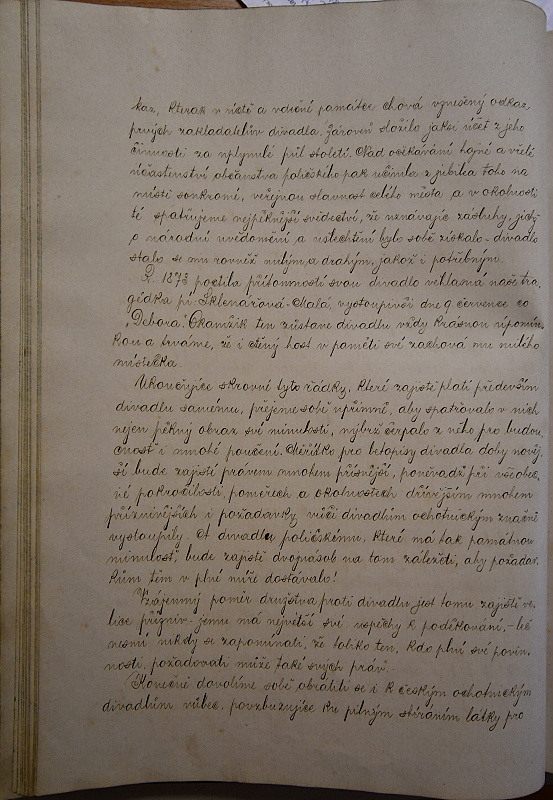 kaz, kterak v úctě a vděčné památce chová vznešený odkaz
prvých zakladatelův divadla. Zároveň složilo jaksi účet z jeho
činnosti za uplynulé půl století. Nad očekávání hojné a vřelé
účastenství občanstva poličského pak učinilo z jubilea toho na
místě soukromé, veřejnou slavnost celého města a v okolnosti
té spatřujeme nejpěknější svědectví, že uznávajíc zásluhy, jichž
o národní uvědomění a ušlechtění bylo sobě získalo - divadlo
stalo se mu rovněž milým a drahým, jakož i potřebným.
R. 1873 poctila přítomností svou divadlo věhlasná naše tra,
gédka pí. Sklenářová-Malá, vystoupivši dne 9 července co
„Debora“. Okamžik ten zůstane divadlu vždy krásnou upomín,
kou a trváme, že i ctěný host v paměti své zachová mu milého
místečka.
Ukončujíce skrovné tyto řádky, které zajisté platí především
divadlu samému, přejeme sobě upřímně, aby spatřovalo v nich
nejen pěkný obraz své minulosti, nýbrž čerpalo z něho pro budou,
cnost i mnohé poučení. Měřítko pro letopisy divadla doby nověj,
ší bude zajisté právem mnohem přísnější, poněvadž při všeobec,
né pokročilosti, poměrech a okolnostech dřívějším mnohem
příznivějších i požadavky vůči divadlům ochotnickým značně
vystoupily. A divadlu poličskému, které má tak památnou
minulost, bude zajisté dvojnásob na tom záležeti, aby požadav,
kům těm v plné míře dostávalo!
Vzájemný poměr družstva proti divadlu jest tomu zajisté ve,
lice příznív - jemu má největší své úspěchy k poděkování, - leč
nesmí nikdy se zapomínati, že toliko ten, kdo plní své povin,
nosti, požadovati může také svých práv.
Konečně dovolíme sobě obrátiti se i k českým ochotnickým
divadlům vůbec, povzbuzujíce ku pilným sbíráním látky pro